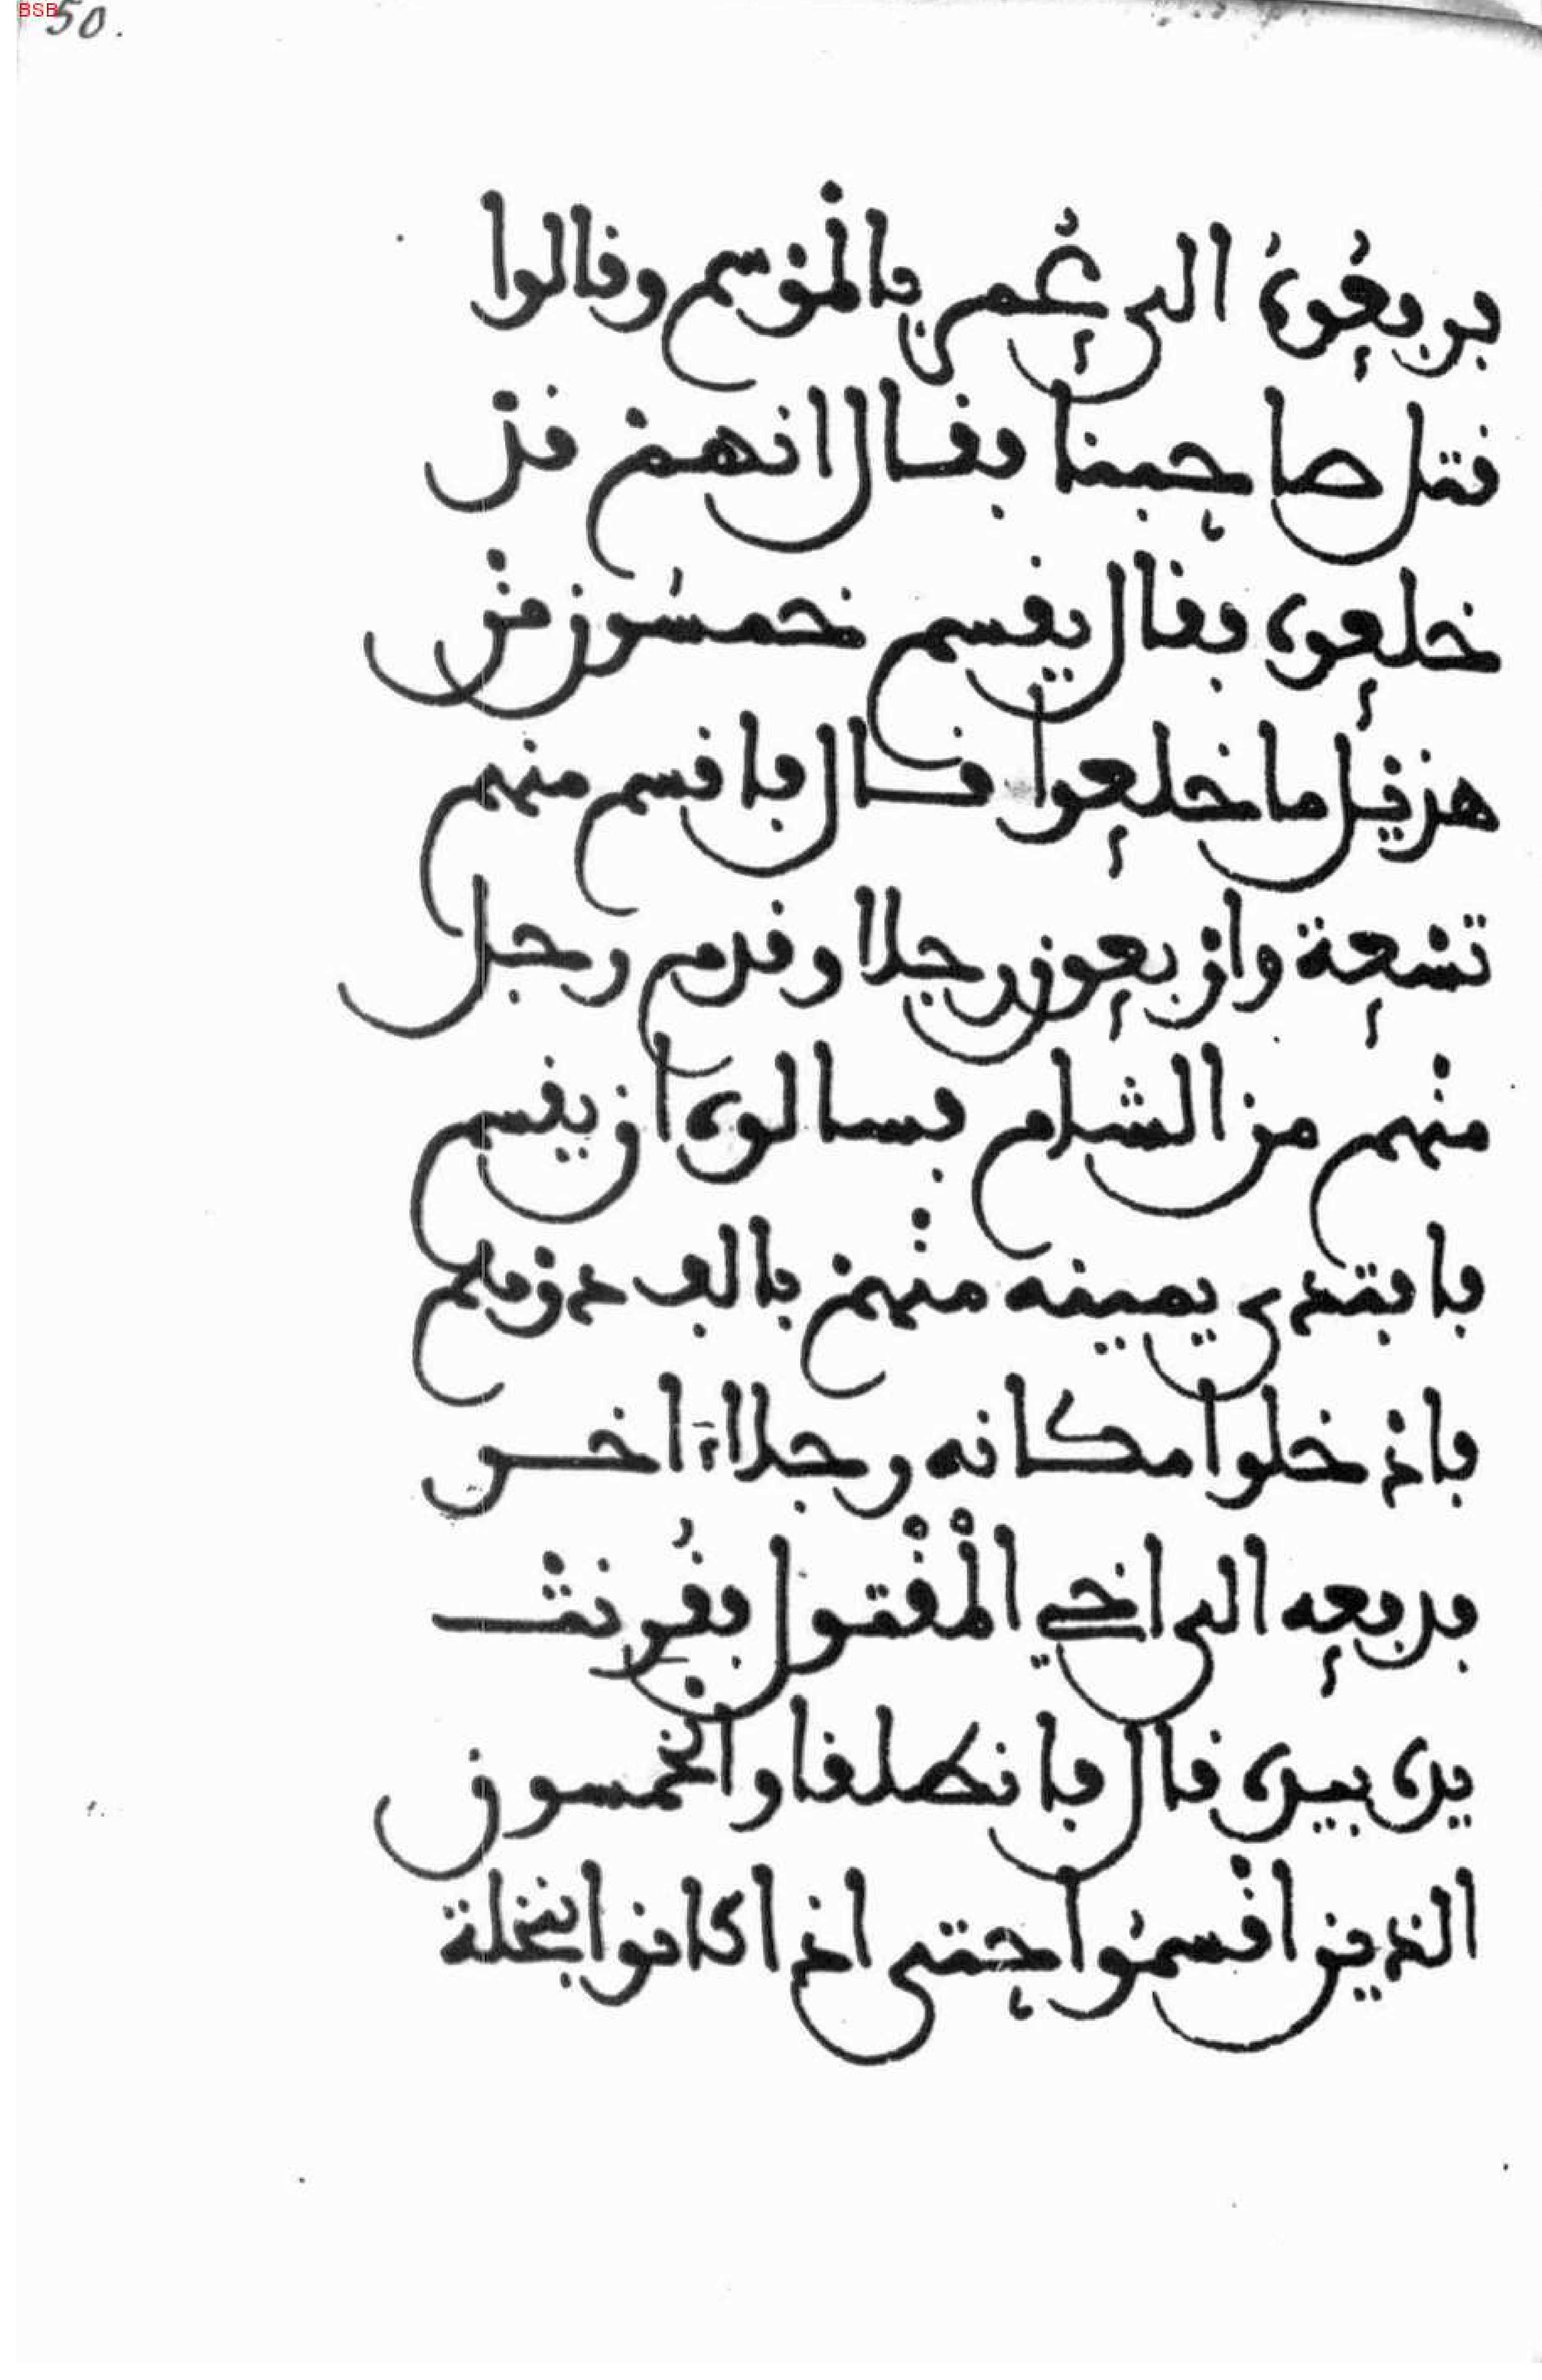 50.
فرفعوه الى عمر بالموسم وقالوا
قتل صاحبنا فقال انهم قد
خلعوه فقال يقسم خمسون من
هذيل ما خلعوا قال فاقسم منهم
تسعة واربعون رجلا وقدم رجل
منهم من الشام فسالوه ان يقسم
فافتدى يمينه منهم بالف درهم
فادخلوا مكانه رجلا اخر
فدفعه الى اخي المقتول فقرنت
يده بيده قال فانطلقا والخمسون
الذين اقسموا حتى اذا كانوا بنخلة
BSB